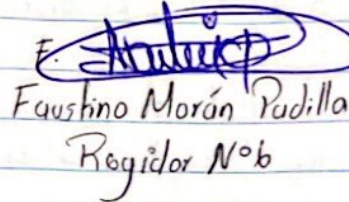 F.
Faustino Morán Padilla
Regidor Nº6